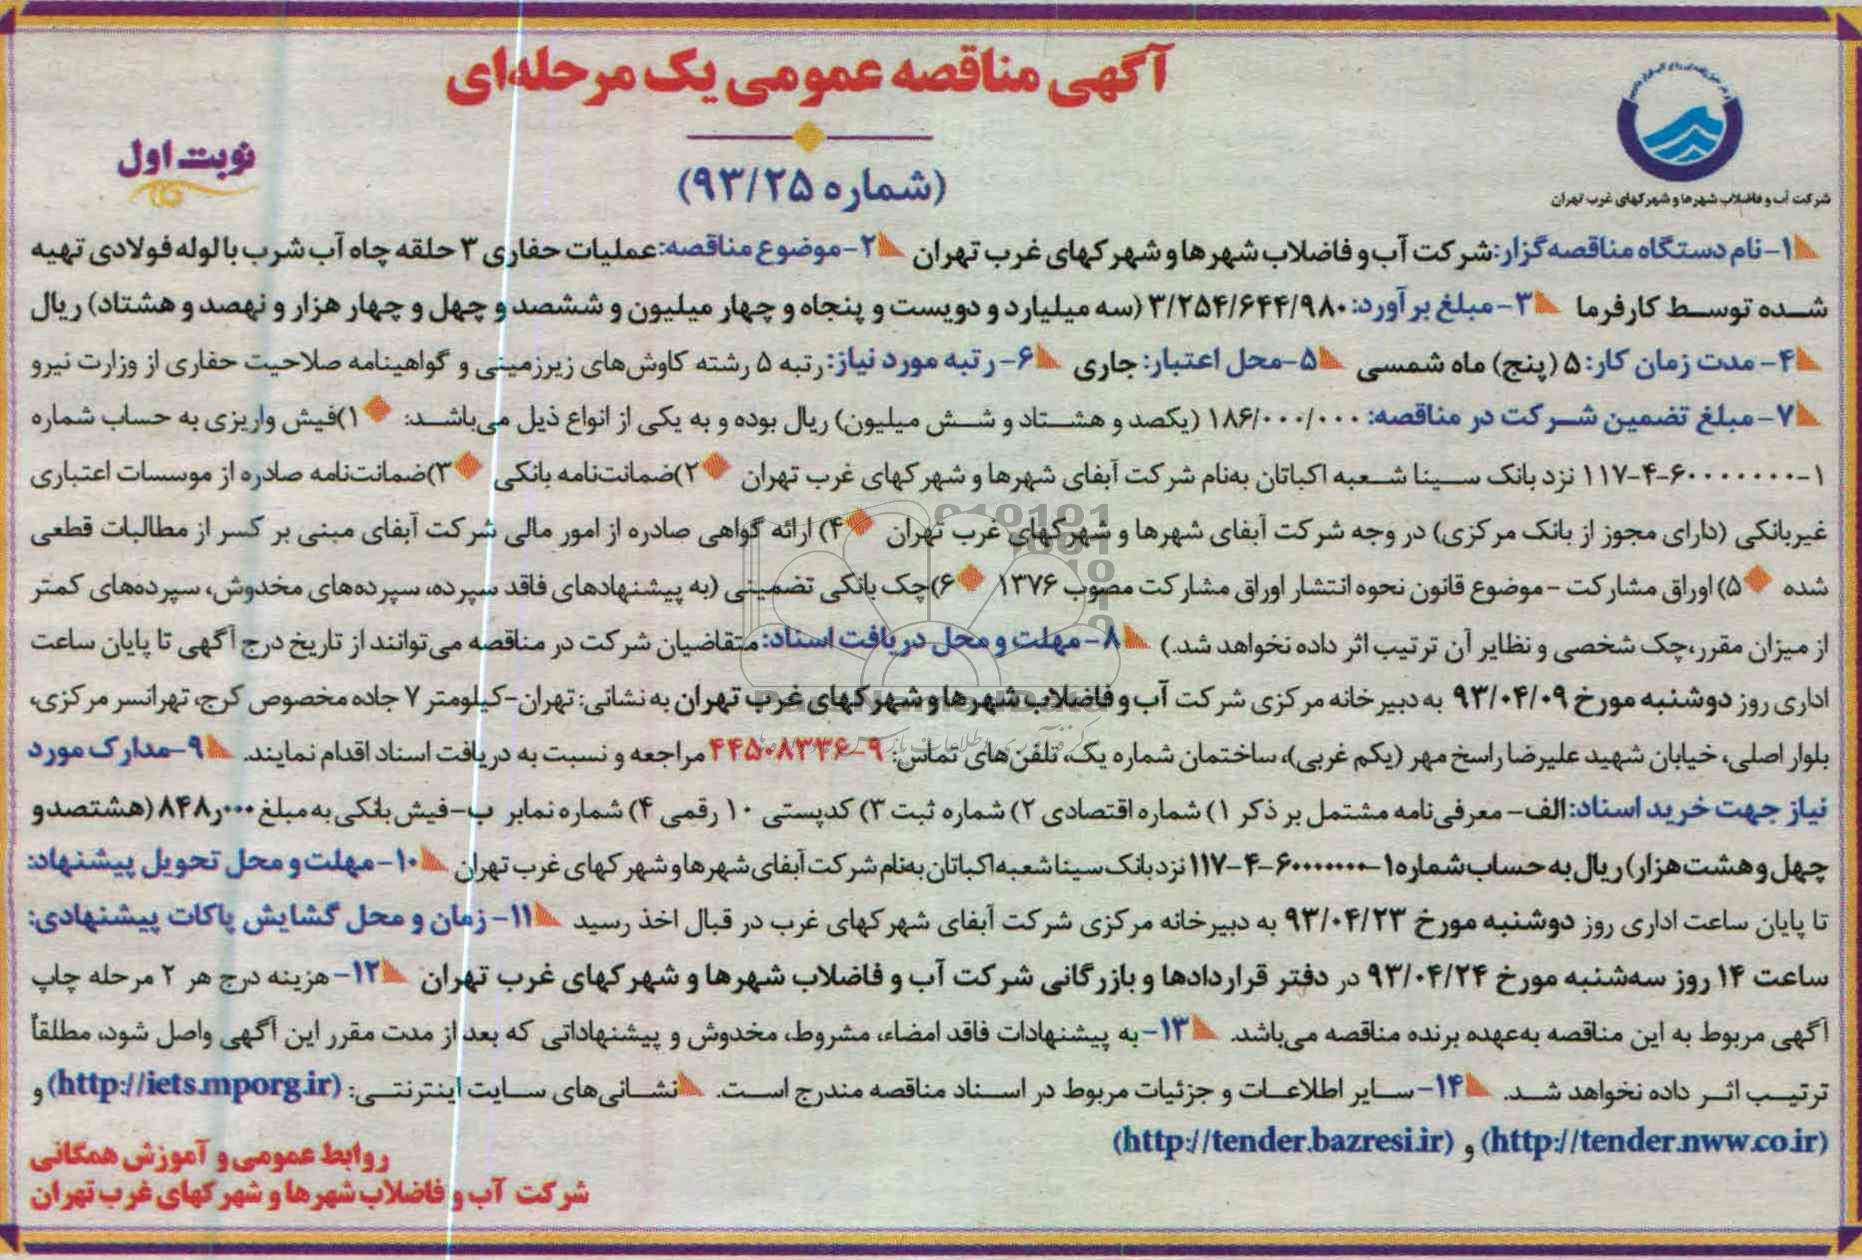 آگهی مناقصه عمومی یک مرحله‌ای
نوبت اول
(شماره ۹۳/۲۵)
شرکت آب و فاضلاب شهرها و شهرکهای غرب تهران
۱- نام دستگاه مناقصه‌گزار: شرکت آب و فاضلاب شهرها و شهرکهای غرب تهران ۲- موضوع مناقصه: عملیات حفاری ۳ حلقه چاه آب شرب با لوله فولادی تهیه
شده توسط کارفرما ۳- مبلغ برآورد: ۳/۲۵۴/۶۴۴/۹۸۰ (سه میلیارد و دویست و پنجاه و چهار میلیون و ششصد و چهل و چهار هزار و نهصد و هشتاد) ریال
۴- مدت زمان کار: ۵ (پنج) ماه شمسی ۵- محل اعتبار: جاری ۶- رتبه مورد نیاز: رتبه ۵ رشته کاوش‌های زیرزمینی و گواهینامه صلاحیت حفاری از وزارت نیرو
۷- مبلغ تضمین شرکت در مناقصه: ۱۸۶/۰۰۰/۰۰۰ (یکصد و هشتاد و شش میلیون) ریال بوده و به یکی از انواع ذیل می‌باشد: ۱)فیش واریزی به حساب شماره
۱-۶۰۰۰۰۰۰۰-۴-۱۱۷ نزد بانک سینا شعبه اکباتان به‌نام شرکت آبفای شهرها و شهرکهای غرب تهران ۲)ضمانت‌نامه بانکی ۳)ضمانت‌نامه صادره از موسسات اعتباری
غیربانکی (دارای مجوز از بانک مرکزی) در وجه شرکت آبفای شهرها و شهرکهای غرب تهران ۴) ارائه گواهی صادره از امور مالی شرکت آبفای مبنی بر کسر از مطالبات قطعی
شده ۵) اوراق مشارکت - موضوع قانون نحوه انتشار اوراق مشارکت مصوب ۱۳۷۶ ۶)چک بانکی تضمینی (به پیشنهادهای فاقد سپرده، سپرده‌های مخدوش، سپرده‌های کمتر
از میزان مقرر،چک شخصی و نظایر آن ترتیب اثر داده نخواهد شد.) ۸- مهلت و محل دریافت اسناد: متقاضیان شرکت در مناقصه می‌توانند از تاریخ درج آگهی تا پایان ساعت
اداری روز دوشنبه مورخ ۹۳/۰۴/۰۹ به دبیرخانه مرکزی شرکت آب و فاضلاب شهرها و شهرکهای غرب تهران به نشانی: تهران-کیلومتر ۷ جاده مخصوص کرج، تهرانسر مرکزی،
بلوار اصلی، خیابان شهید علیرضا راسخ مهر (یکم غربی)، ساختمان شماره یک، تلفن‌های تماس: ۹-۴۴۵۰۸۳۳۶ مراجعه و نسبت به دریافت اسناد اقدام نمایند. ۹-مدارک مورد
نیاز جهت خرید اسناد: الف- معرفی‌نامه مشتمل بر ذکر ۱) شماره اقتصادی ۲) شماره ثبت ۳) کدپستی ۱۰ رقمی ۴) شماره نمابر ب- فیش بانکی به مبلغ ۸۴۸ر۰۰۰ (هشتصد و
چهل و هشت هزار) ریال به حساب شماره ۱-۶۰۰۰۰۰۰۰-۴-۱۱۷ نزد بانک سینا شعبه اکباتان به‌نام شرکت آبفای شهرها و شهرکهای غرب تهران ۱۰- مهلت و محل تحویل پیشنهاد:
تا پایان ساعت اداری روز دوشنبه مورخ ۹۳/۰۴/۲۳ به دبیرخانه مرکزی شرکت آبفای شهرکهای غرب در قبال اخذ رسید ۱۱- زمان و محل گشایش پاکات پیشنهادی:
ساعت ۱۴ روز سه‌شنبه مورخ ۹۳/۰۴/۲۴ در دفتر قراردادها و بازرگانی شرکت آب و فاضلاب شهرها و شهرکهای غرب تهران ۱۲- هزینه درج هر ۲ مرحله چاپ
آگهی مربوط به این مناقصه به‌عهده برنده مناقصه می‌باشد. ۱۳- به پیشنهادات فاقد امضاء، مشروط، مخدوش و پیشنهاداتی که بعد از مدت مقرر این آگهی واصل شود، مطلقاً
ترتیب اثر داده نخواهد شد. ۱۴- سایر اطلاعات و جزئیات مربوط در اسناد مناقصه مندرج است. نشانی‌های سایت اینترنتی: (http://iets.mporg.ir) و
(http://tender.nww.co.ir) و (http://tender.bazresi.ir)
روابط عمومی و آموزش همگانی
شرکت آب و فاضلاب شهرها و شهرکهای غرب تهران